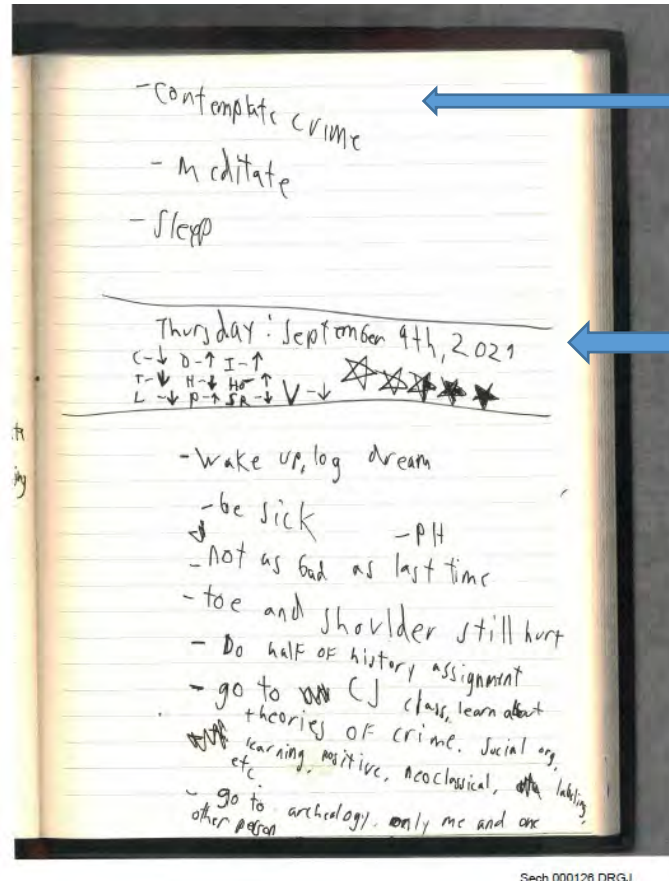 - Contemplate crime
- Meditate
- Sleep
Thursday: September 9th, 2021
C-↓ D-↑ I-↑
T-↓ H-↓ Ho-↑
L-↓ P-↑ SR-↓ V-↓
- Wake up, log dream
- be sick - PH
- not as bad as last time
- toe and shoulder still hurt
- Do half of history assignment
- go to CJ class, learn about
theories of crime. Social org,
learning, positive, neoclassical, labeling,
etc.
- go to archeology. only me and one
other person
Sech 000126 DRGJ